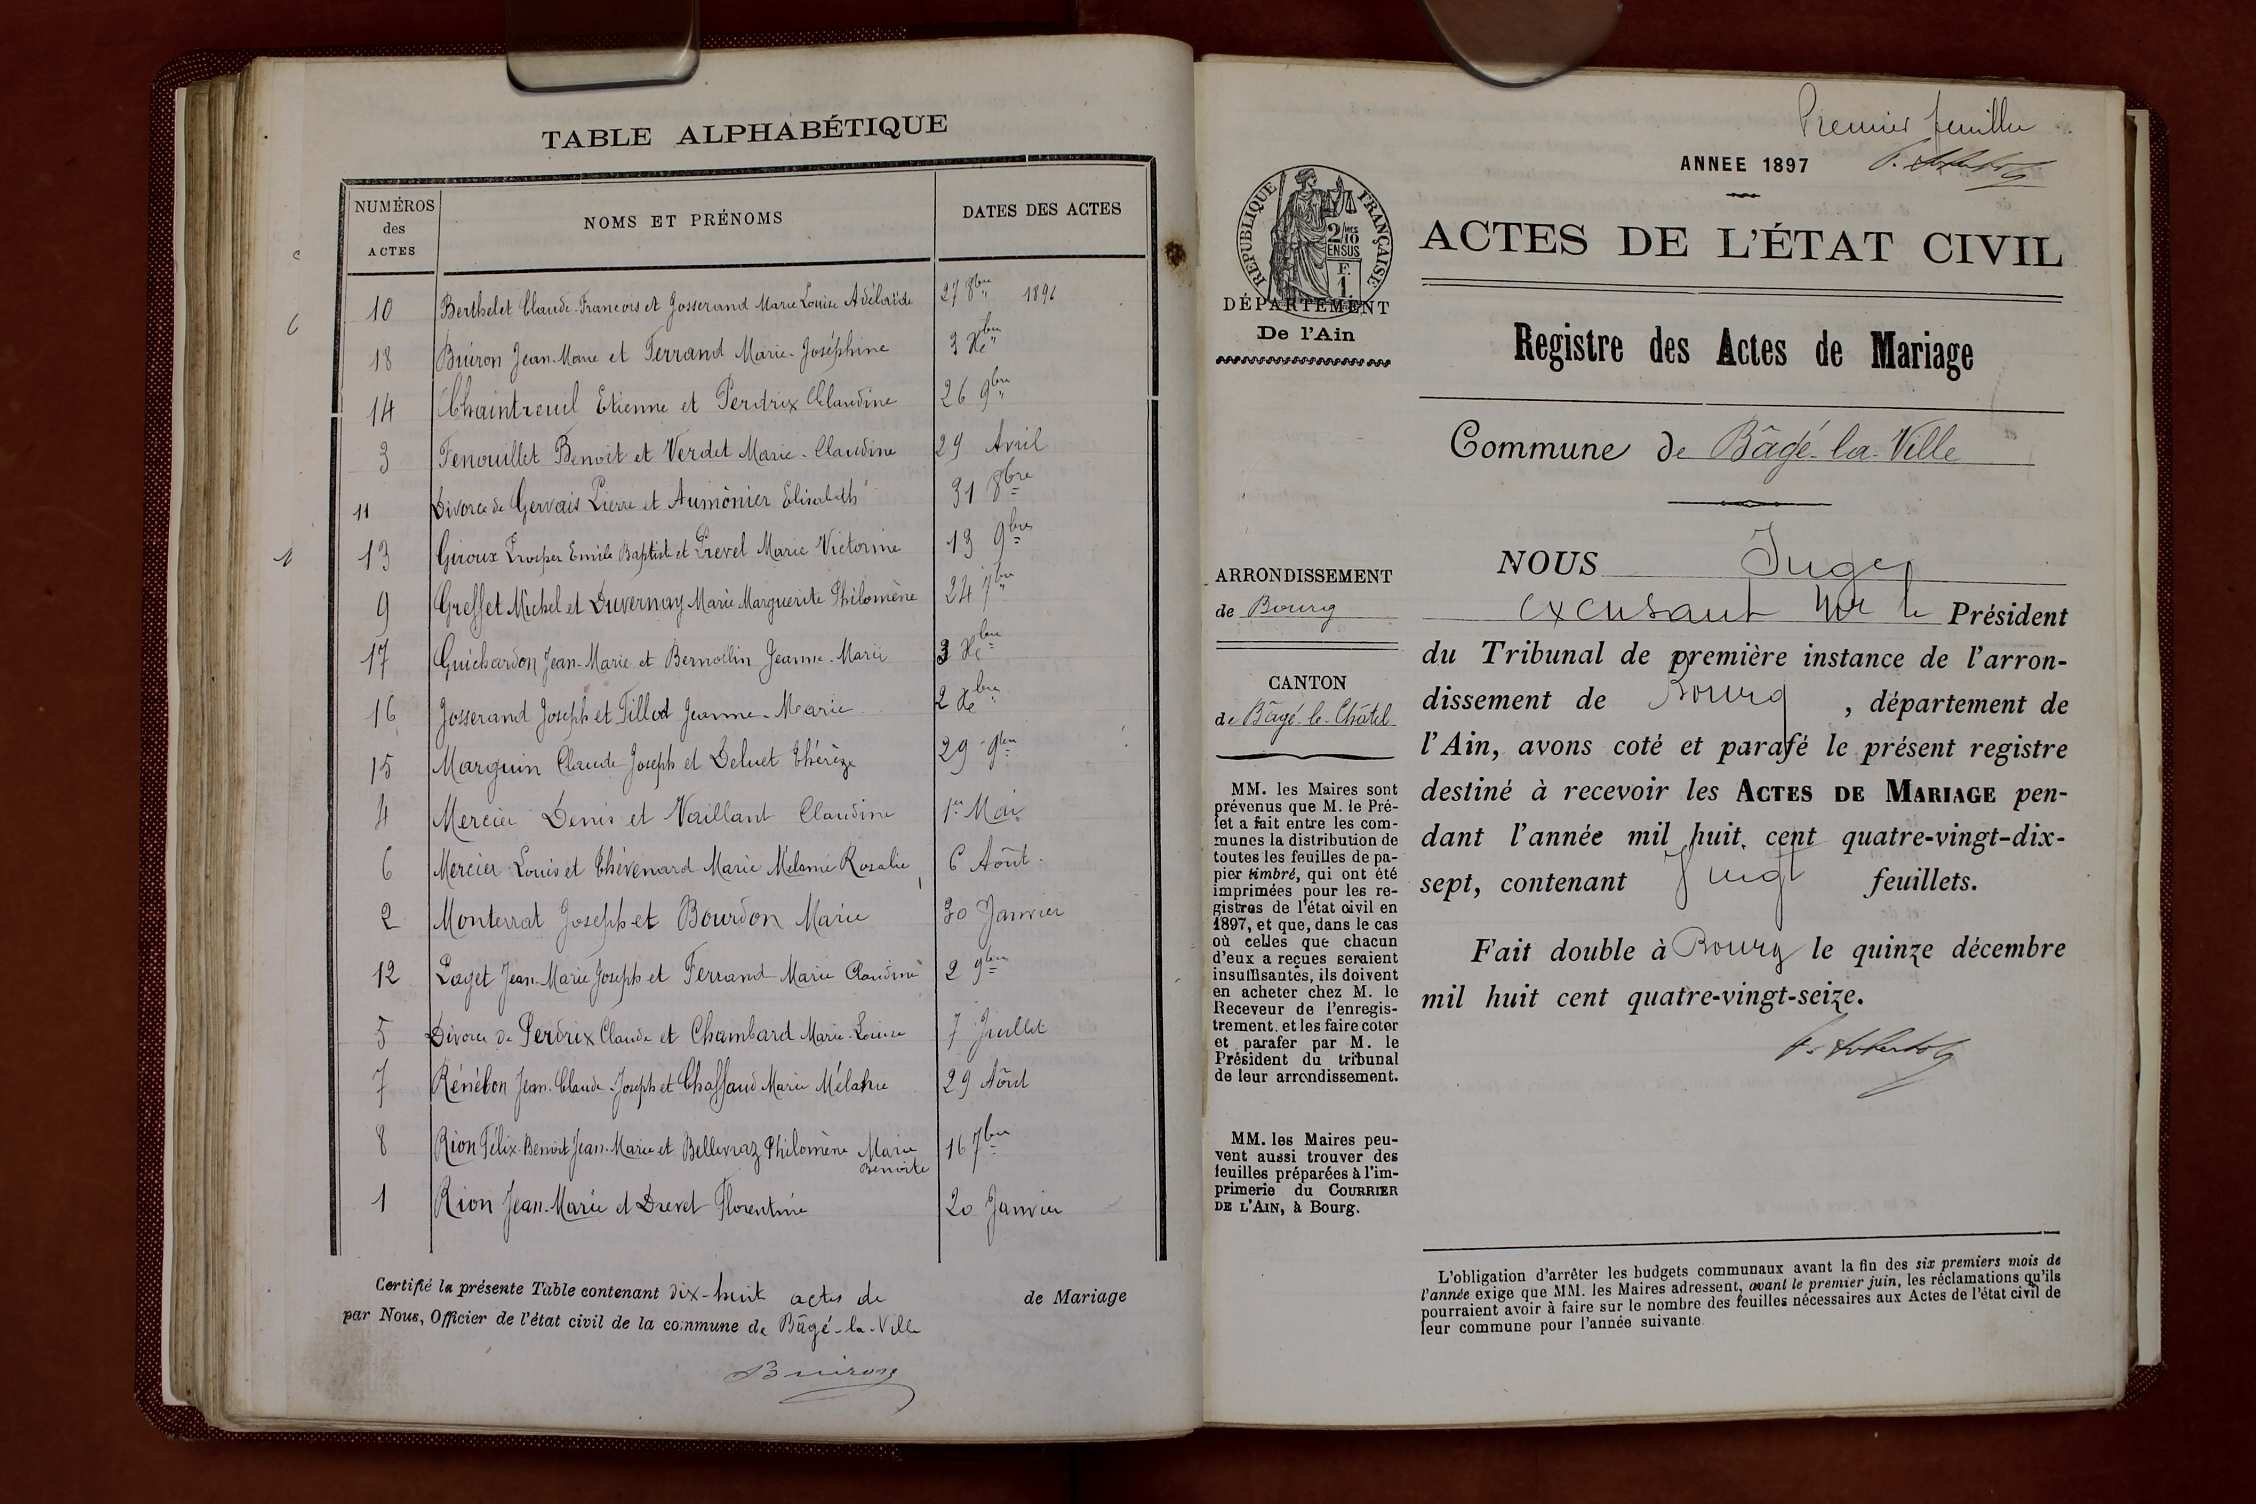 TABLE ALPHABÉTIQUE
NUMÉROS des ACTES NOMS ET PRÉNOMS DATES DES ACTES
10 Berthelet Claude-François et Josserand Marie Louise Adélaïde 27 8bre 1896
18 Buiron Jean-Marie et Ferrand Marie-Joséphine 3 Xbre
14 Chaintreuil Etienne et Perdrix Claudine 26 9bre
3 Fenouillet Benoit et Verdet Marie-Claudine 29 Avril
11 Divorce de Gervais Pierre et Aumônier Elisabeth 31 8bre
13 Giroux Prosper Emile Baptiste et Prevel Marie Victorine 13 9bre
9 Greffet Michel et Duvernay Marie Marguerite Philomène 24 7bre
17 Guichardon Jean-Marie et Bernollin Jeanne-Marie 3 Xbre
16 Josserand Joseph et Tillod Jeanne-Marie 2 Xbre
15 Marguin Claude Joseph et Deluet Thérèze 29 9bre
4 Mercier Denis et Vaillant Claudine 1er Mai
6 Mercier Louis et Thévenard Marie Mélanie Rosalie 6 Août
2 Monterrat Joseph et Bourdon Marie 30 Janvier
12 Paget Jean-Marie Joseph et Ferrand Marie Claudine 2 9bre
5 Divorce de Perdrix Claude et Chambard Marie-Louise 7 Juillet
7 Rénébon Jean-Claude-Joseph et Chaffaud Marie Mélanie 29 Août
8 Rion Félix-Benoit Jean-Marie et Bellevraz Philomène Marie Benoite 16 7bre
1 Rion Jean-Marie et Drevet Florentine 20 Janvier
Certifié la présente Table contenant dix-huit actes de de Mariage
par Nous, Officier de l'état civil de la commune de Bâgé-la-Ville
Buiron
Premier feuillet
ANNEE 1897
RÉPUBLIQUE FRANÇAISE
2/10 EN SUS
F. 1
DÉPARTEMENT
De l'Ain
ACTES DE L'ÉTAT CIVIL
Registre des Actes de Mariage
Commune de Bâgé-la-Ville
ARRONDISSEMENT
de Bourg
CANTON
de Bâgé-le-Châtel
MM. les Maires sont
prévenus que M. le Pré-
fet a fait entre les com-
munes la distribution de
toutes les feuilles de pa-
pier timbré, qui ont été
imprimées pour les re-
gistres de l'état civil en
1897, et que, dans le cas
où celles que chacun
d'eux a reçues seraient
insuffisantes, ils doivent
en acheter chez M. le
Receveur de l'enregis-
trement, et les faire coter
et parafer par M. le
Président du tribunal
de leur arrondissement.
MM. les Maires peu-
vent aussi trouver des
feuilles préparées à l'im-
primerie du COURRIER
DE L'AIN, à Bourg.
NOUS Juge
excusant Mr le Président
du Tribunal de première instance de l'arron-
dissement de Bourg, département de
l'Ain, avons coté et parafé le présent registre
destiné à recevoir les ACTES DE MARIAGE pen-
dant l'année mil huit cent quatre-vingt-dix-
sept, contenant vingt feuillets.
Fait double à Bourg le quinze décembre
mil huit cent quatre-vingt-seize.
L'obligation d'arrêter les budgets communaux avant la fin des six premiers mois de
l'année exige que MM. les Maires adressent, avant le premier juin, les réclamations qu'ils
pourraient avoir à faire sur le nombre des feuilles nécessaires aux Actes de l'état civil de
leur commune pour l'année suivante.